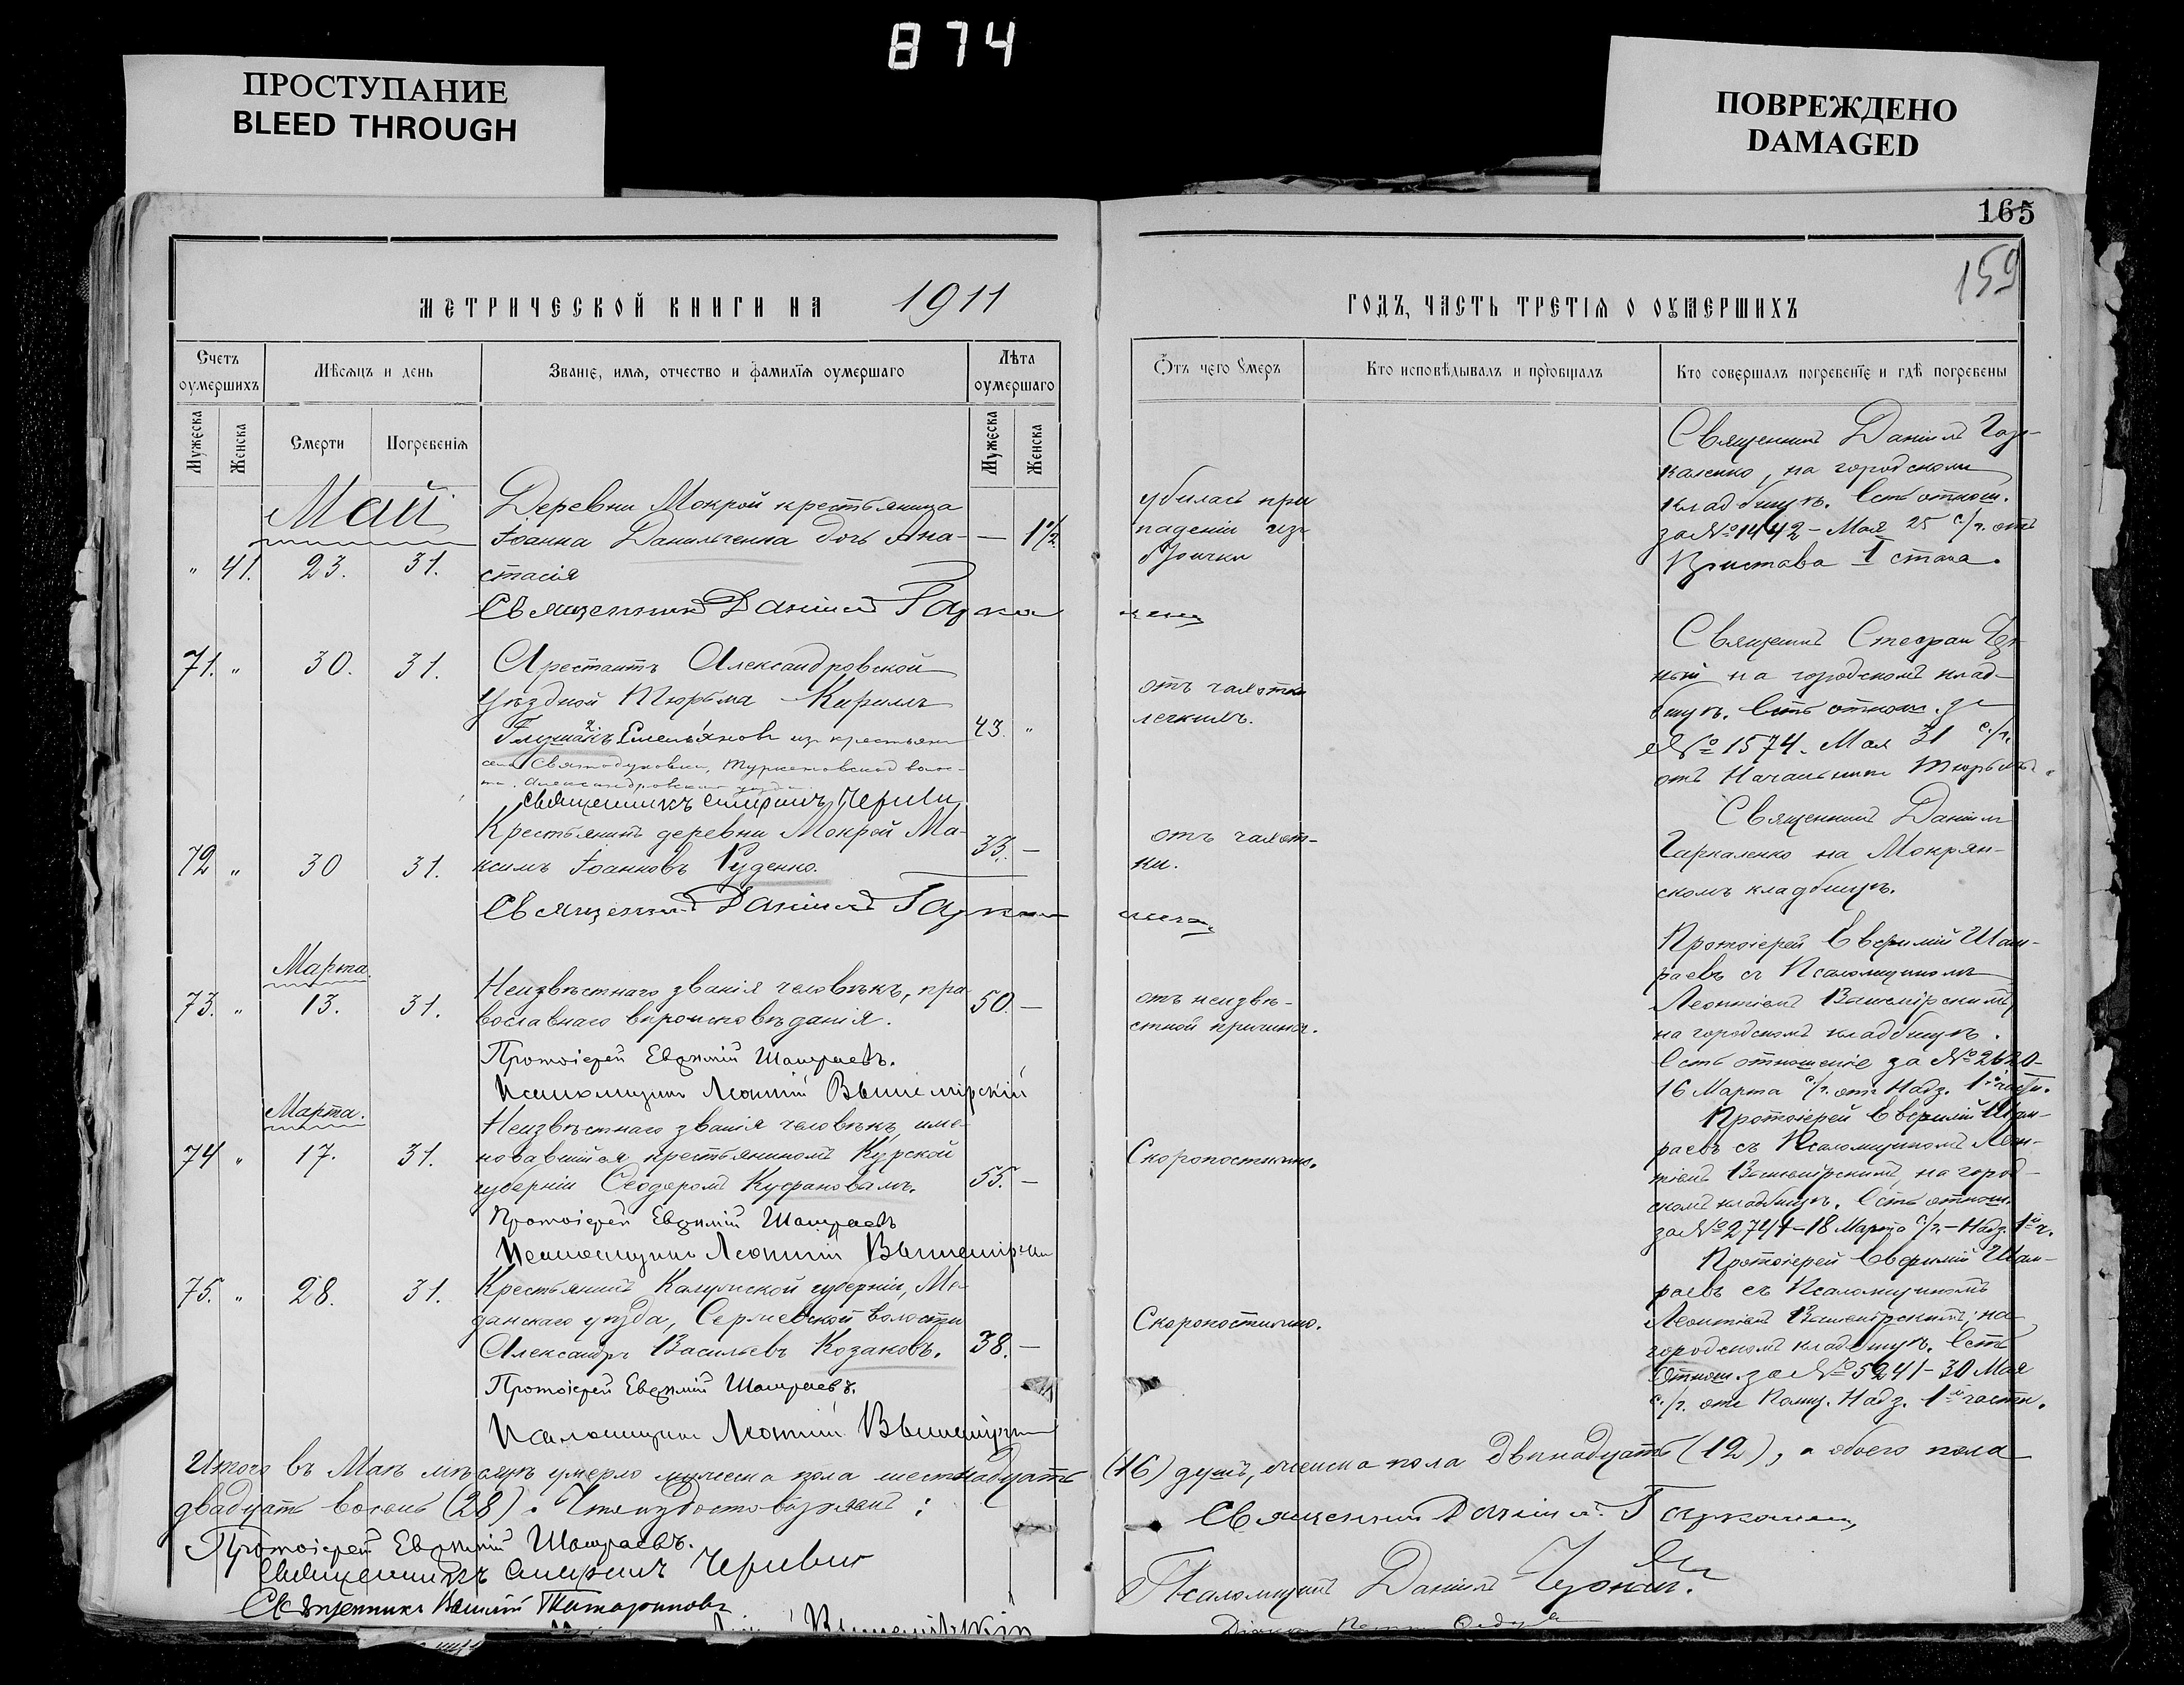 874
ПРОСТУПАНИЕ
BLEED THROUGH
ПОВРЕЖДЕНО
DAMAGED
165
159
МЕТРИЧЕСКОЙ КНИГИ НА 1911
ГОДЪ, ЧАСТЬ ТРЕТІѦ О ОУМЕРШИХЪ
Счетъ оумершихъ
Мѣсѧцъ и день
Званіе, имѧ, отчество и фамиліѧ оумершаго
Лѣта оумершаго
Мужеска
Женска
Смерти
Погребеніѧ
Мужеска
Женска
Ѿтъ чего ѹмеръ
Кто исповѣдывалъ и пріобщалъ
Кто совершалъ погребеніе и гдѣ погребены
Май
Деревни Мокрой крестьянина
Іоанна Данильченка дочь Ана- — 1½
" 41. 23. 31. стасія
Священникъ Даніилъ Гарка
убилась при
паденіи изъ
Священникъ Даніилъ Гар-
каленко, на городскомъ
кладбищѣ. Есть отнош.
за № 1442 - Мая 25 с/г. отъ
Пристава 1 стана.
71. " 30. 31. Арестантъ Александровской
уѣздной Тюрьмы Кирилъ
Емельяновъ изъ крестьянъ 43. "
села Святодуховки,
Александровскаго уѣзда.
Священникъ
отъ чахотки
легкихъ.
Священникъ Стефанъ
на городскомъ клад-
бищѣ. Есть отнош. за
№ 1574. Мая 31 с/г.
отъ Начальника Тюрьмы.
72 " 30 31. Крестьянинъ деревни Мокрой Ма-
ксимъ Іоанновъ Руденко. 33. —
Священникъ Даніилъ Гарка
отъ чахот-
ки.
Священникъ Даніилъ
Гаркаленко на Мокрян-
скомъ кладбищѣ.
Марта.
73. " 13. 31. Неизвѣстнаго званія человѣкъ, пра- 50. —
вославнаго вѣроисповѣданія.
Протоіерей Евѳимій Шамраевъ.
Псаломщикъ Леонтій Вышемірскій
отъ неизвѣ-
стной причины.
Протоіерей Евѳимій Шам-
раевъ съ Псаломщикомъ
Леонтіемъ Вышемірскимъ
на городскомъ кладбищѣ.
Есть отношеніе за № 2620-
16 Марта с/г. отъ Надз. 1й части.
Марта.
74 " 17. 31. Неизвѣстнаго званія человѣкъ, име-
новавшійся крестьяниномъ Курской
губерніи Ѳеодоромъ 55. —
Протоіерей Евѳимій Шамраевъ
Псаломщикъ Леонтій Вышемірскій
Скоропостижно.
Протоіерей Евѳимій Шам-
раевъ съ Псаломщикомъ Леон-
тіемъ Вышемірскимъ, на город-
скомъ кладбищѣ. Есть отнош.
за № 2741 - 18 Марта с/г. - Надз. 1й ч.
75. " 28. 31. Крестьянинъ Калужской губерніи, Мо-
данскаго уѣзда, волости
Александръ Васильевъ Козаковъ. 38. —
Протоіерей Евѳимій Шамраевъ.
Псаломщикъ Леонтій Вышемірскій
Скоропостижно.
Протоіерей Евѳимій Шам-
раевъ съ Псаломщикомъ
Леонтіемъ Вышемірскимъ, на
городскомъ кладбищѣ. Есть
отнош. за № 5241 - 30 Мая
с/г. отъ Полиц. Надз. 1й части.
Итого въ Маѣ мѣсяцѣ умерло мужеска пола шестнадцать (16) душъ, женска пола двѣнадцать (12), а обоего пола
двадцать восемь (28). Что и удостовѣряемъ:
Протоіерей Евѳимій Шамраевъ.
Священникъ Даніилъ Гаркаленко
Священникъ
Священникъ Василій Татариновъ
Псаломщикъ Даніилъ